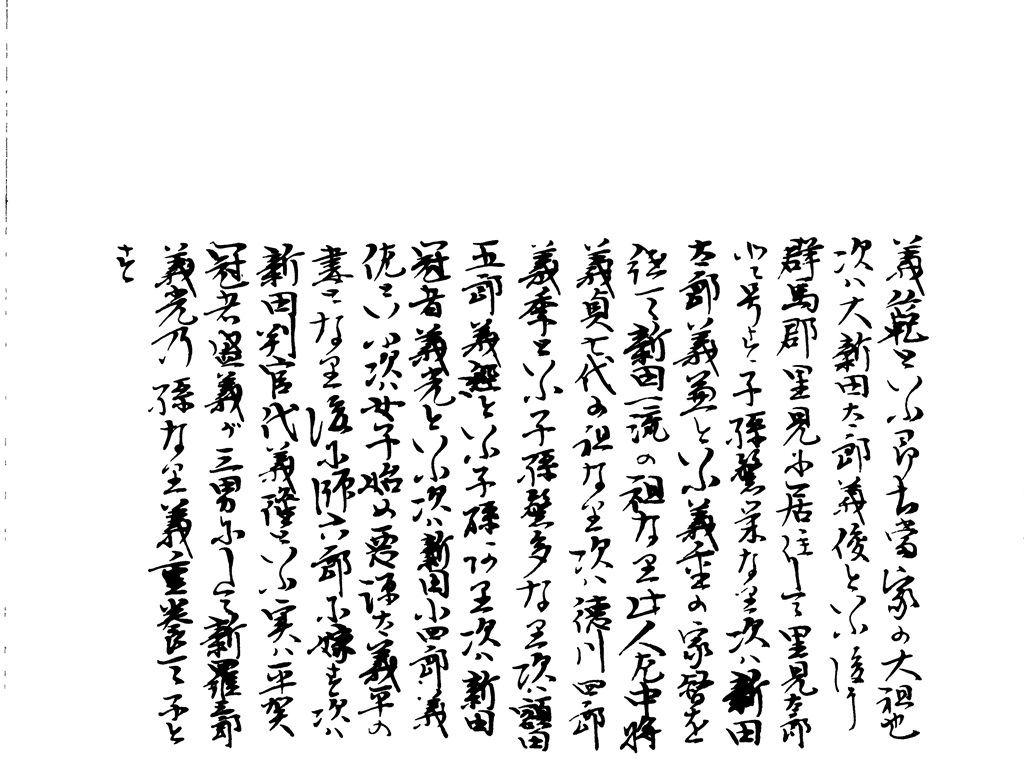 義範といふ即古當家の大祖也
次ハ大新田太郎義俊といふ後に
群馬郡里見に居住して里見太郎
と号す子孫繁栄なり次ハ新田
太郎義兼といふ義重の家督を
継て新田一流の祖なり此人左中将
義貞七代の祖なり次ハ徳川四郎
義季といふ子孫繁多なり次ハ額田
五郎義經といふ子孫あり次ハ新田
冠者義光といふ次ハ新田小四郎義
佐といふ次ハ女子始め悪源太義平の
妻となり後に師六郎に嫁す次ハ
新田判官代義隆といふ実ハ平賀
冠者盛義が三男にして新羅三郎
義光乃孫なり義重養て子と
す